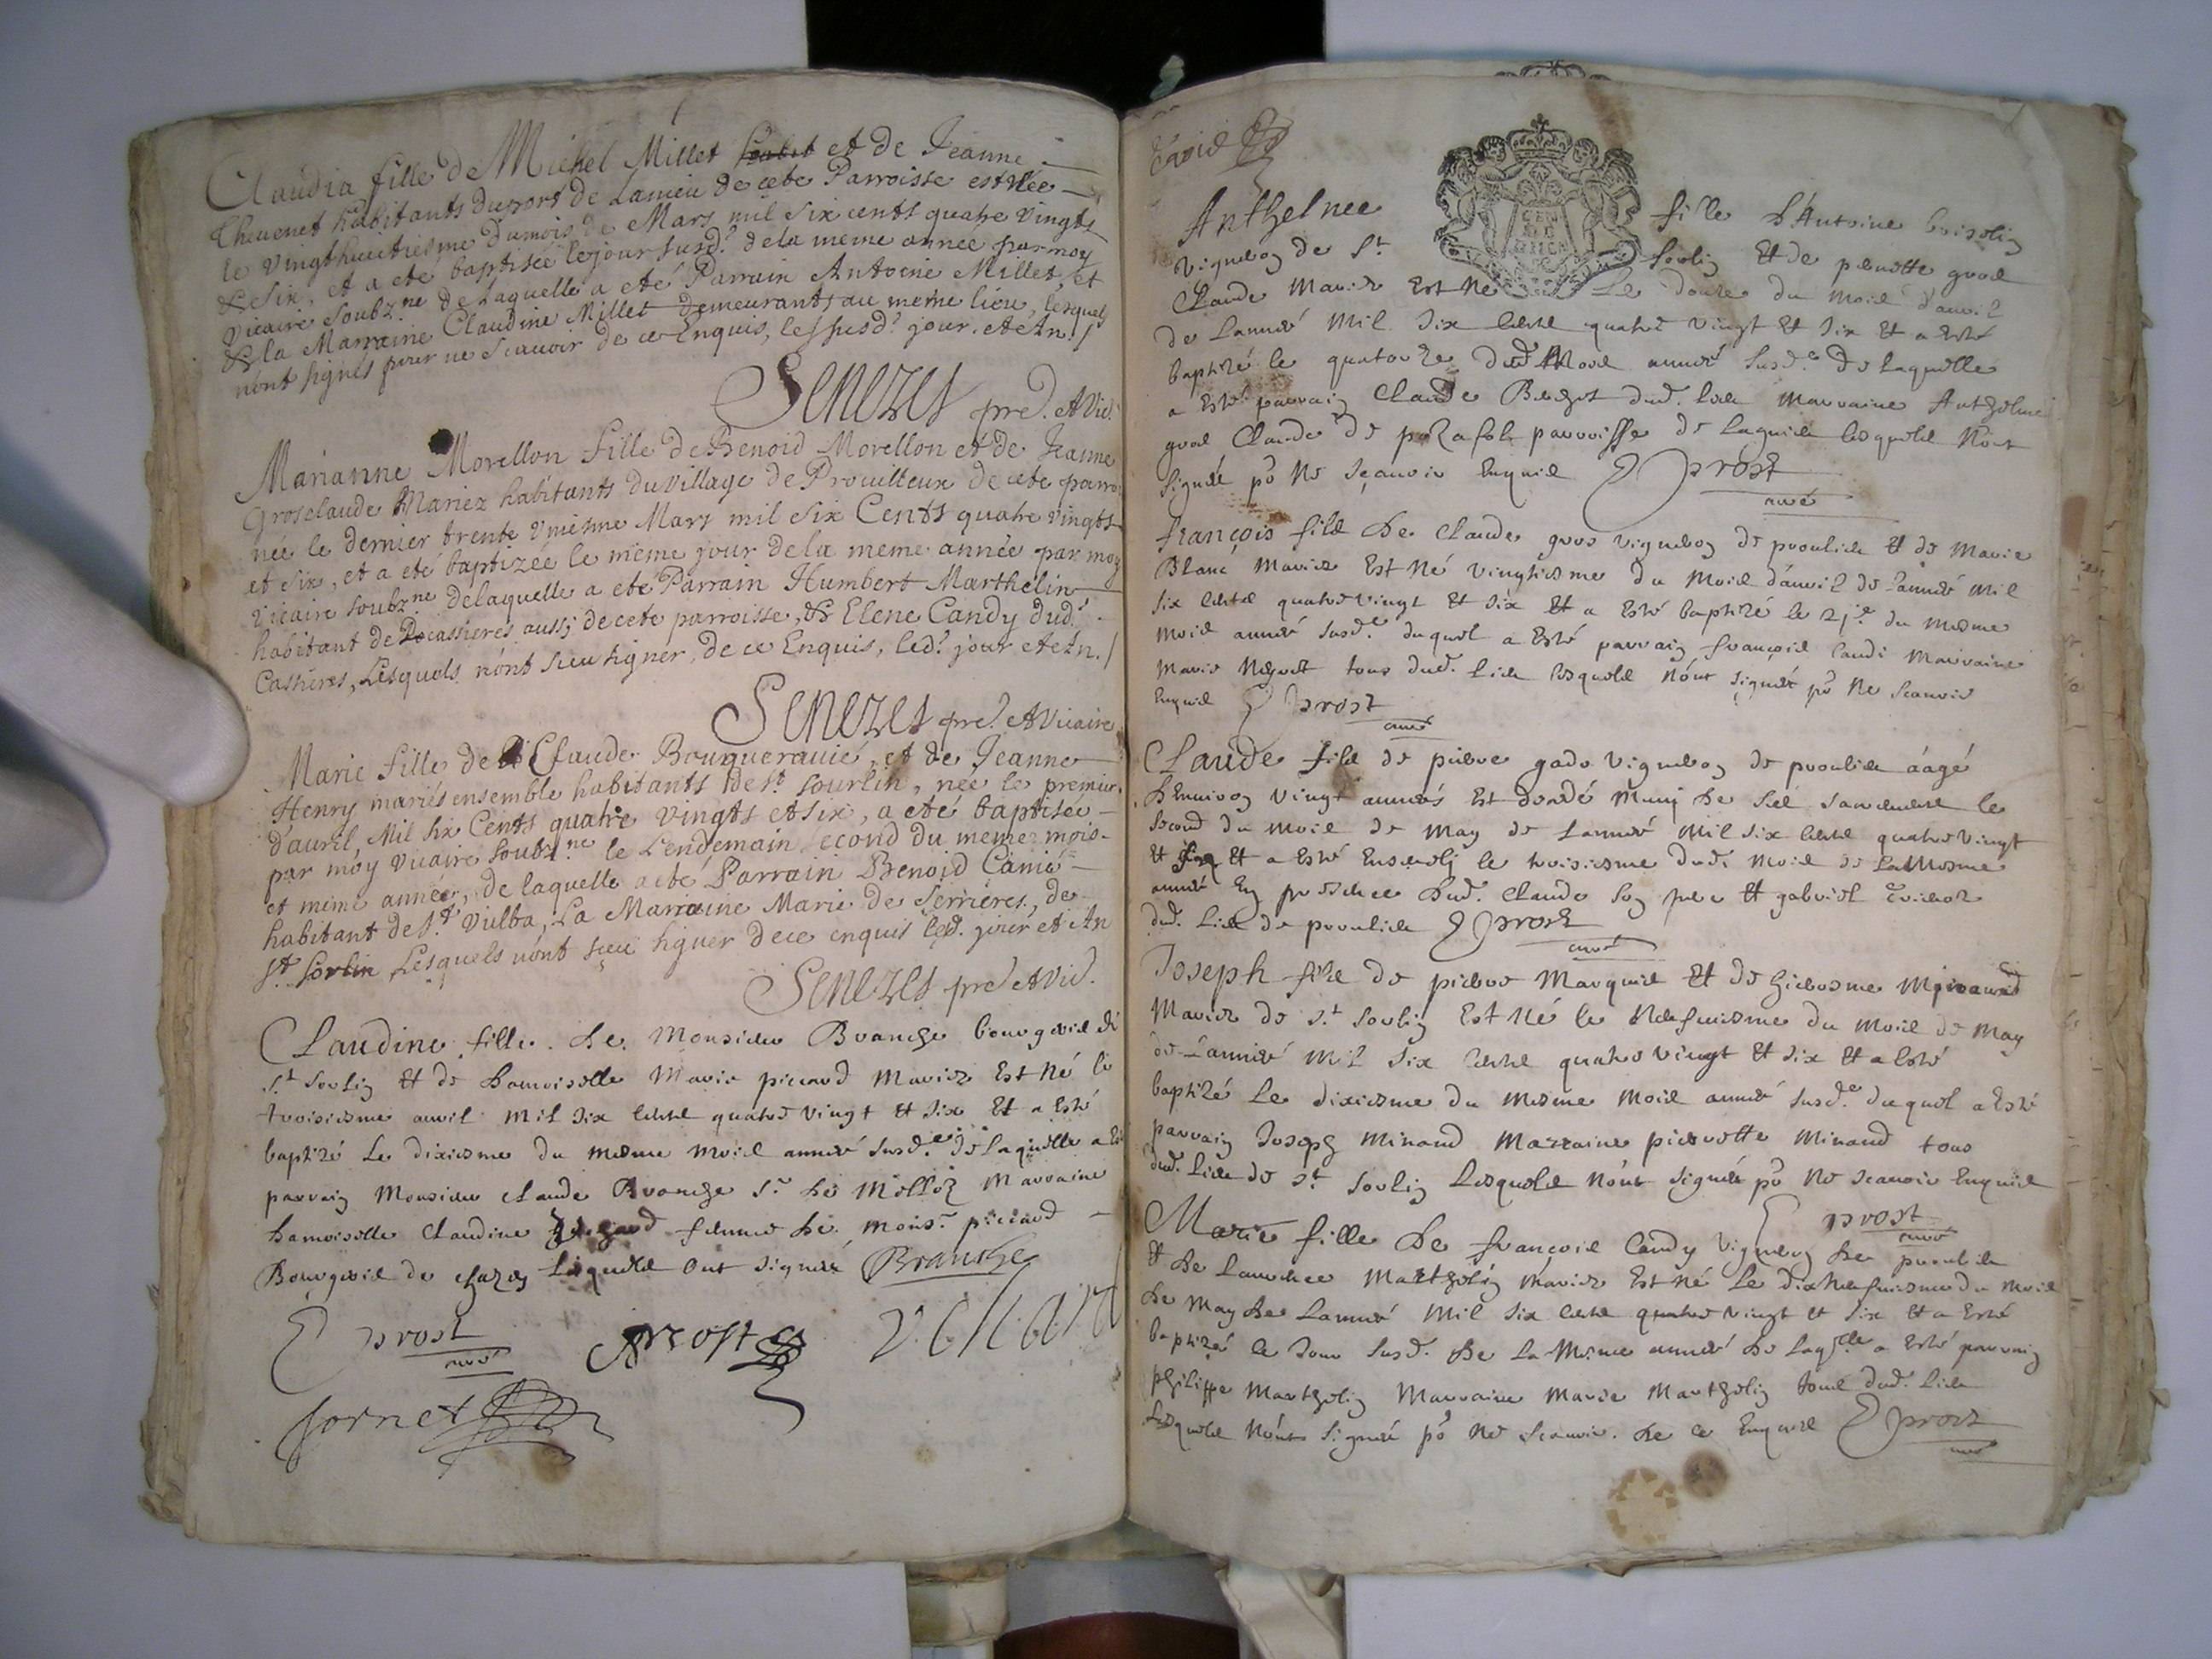 Claudia fille de Michel Millet et de Jeanne
Theuenet habitants du port de Lanieu de cete Parroisse est née
le vingthuictiesme du mois de Mars mil six cents quatre vingts
& six, et a eté baptisée le jour susd.t de la meme année par moy
vicaire soubz.ne de laquelle a eté Parrain Antoine Millet, et
& la Marraine Claudine Millet demeurants au meme lieu, lesquels
n'ont signés pour ne scauoir de ce Enquis, les susd.t jour et An./
Senezes pre. et Vic.
Marianne Morellon fille de Benoid Morellon et de Jeanne
Groselaude Mariez habitants du village de Prouilleux de cete parroi
née le dernier trente vniesme Mars mil six Cents quatre vingts
et six, et a eté baptizée le méme jour de la meme année par moy
vicaire soubz.ne de laquelle a eté Parrain Humbert Marthelin
habitant de Decassieres aussj de cete parroisse, & Elene Candy dud.t
Cassieres, Lesquels n'ont sceu signer, de ce Enquis, led.t jour et An./
Senezes pre. et Vicaire
Marie fille de Claude Bouguerauié, et de Jeanne
Henry mariés ensemble habitants de s.t sourlin, née le premier
d'auril, Mil six Cents quatre vingts et six, a eté baptisée
par moy vicaire soubz.ne le Lendemain second du meme mois
et méme année, de laquelle a eté Parrain Benoid Camié
habitant de s.t Vulba, La Marraine Marie de Serrieres, de
s.t Sorlin Lesquels n'ont sceu signer de ce enquis led. jour et An
Senezes pre et Vic.
Claudine fille de Monsieur Branche bourgois di
s.t sorlin et de damoiselle Marie piccard Mariez est né le
troisiesme auril mil six cents quatre vingt et six et a esté
baptizé le dixiesme du mesme mois année susd.e de laquelle a est
parrain Monsieur claude Branche s.r de Marraine
damoiselle Claudine femme de mons.r piccard
Bourgois de chazey lesquels ont signéz Branche
prost curé prost
sornet
Anthelmee fille d'Antoine
vigneron de s.t sorlin et de pernette gros
Claude Mariez est né le douze du mois d'auril
de lannee mil six cents quatre vingt et six et a esté
baptizé le quatorze dud. mois année susd.e de laquelle
a esté parrain Claude dud. lieu marraine Anthelme
gros Claude de parroisse de Lagnieu lesquels n'ont
signéz po ne scauoir enquis prost
curé
françois fils de Claude gros vigneron de proulieu et de Marie
Blanc mariez est né vingtiesme du mois d'auril de lannée mil
six cents quatre vingt et six et a esté baptizé le 21.e du mesme
mois année susd.e duquel a esté parrain françois Candi marraine
marie tous dud. lieu lesquels n'ont signéz po ne scauoir
enquis prost
curé
Claude fils de pierre vigneron de proulieu áagé
denuiron vingt années est decedé muni de ses sacrements le
second du mois de may de lannée mil six cents quatre vingt
et six et a esté enseueli le troisiesme dud. mois de la mesme
année en presence dud. Claude son pere et gabriel
dud. lieu de proulieu prost
curé
Joseph fils de pierre Marquis et de hierosme
Mariez de s.t sorlin est né le neufuiesme du mois de May
de lannée mil six cents quatre vingt et six et a esté
baptizé le dixiesme du mesme mois année susd.e duquel a esté
parrain Joseph Minand Marraine pierrette Minand tous
dud. lieu de s.t sorlin lesquels n'ont signéz po ne scauoir enquis
prost
curé
Marie fille de françois Candy vigneron de proulieu
et de Laurence Marthelin mariez est né le dixneufuiesme du mois
de may de lannée mil six cents quatre vingt et six et a esté
baptizé le jour susd. de la mesme année de laq.lle a esté parrain
philippe Marthelin Marraine marie Marthelin tous dud. lieu
lesquels n'ont signéz po ne scauoir de ce enquis prost
curé